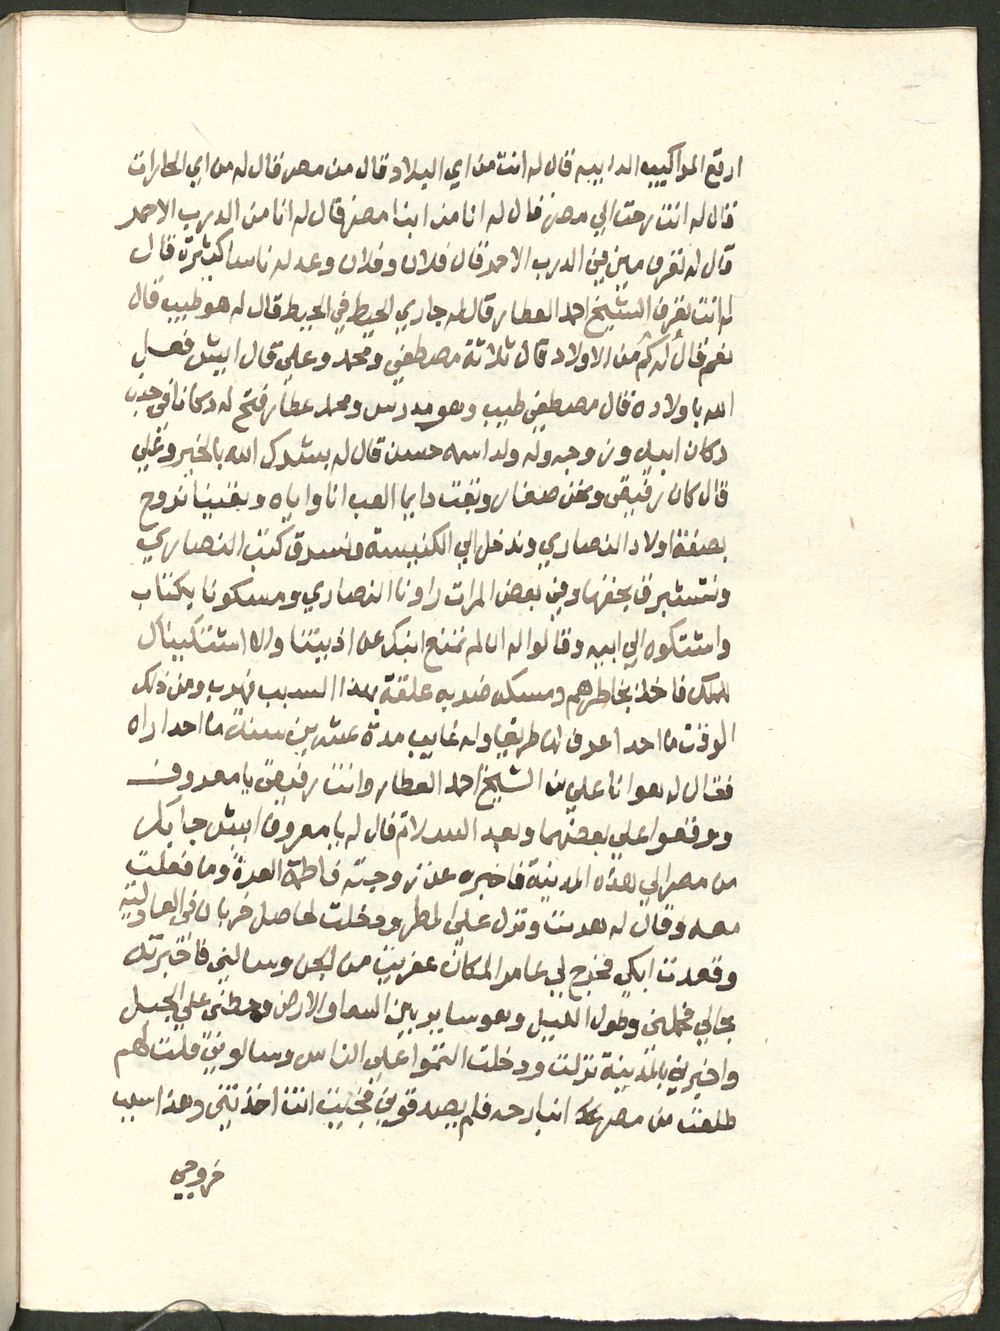 اربع المواكيب الدايبه قال له انت من اي البلاد قال من مصر قال له من اي الحارات
قال له انت رحت الي مصر قال له انا من ابنا مصر قال له انا من الدرب الاحمر
قال له تعرف مين في الدرب الاحمر قال فلان وفلان وعد له ناسا كثيرة قال
له انت تعرف الشيخ احمد العطار قال له جاري الحيط في الحيط قال له هو طيب قال
نعم قال له كم من الاولاد قال ثلاثة مصطفي ومحمد وعلي قال ايش فعل
الله باولاده قال مصطفي طيب وهو مدرس ومحمد عطار فتح له دكانا في جنب
دكان ابيه وزوجه وله ولد اسمه حسن قال له بشرك الله بالخير وعلي
قال كان رفيقي ونحن صغار وبقيت دايما العب انا واياه وبقينا نروح
بصفة اولاد النصاري وندخل الي الكنيسة ونسرق كتب النصاري
ونشتري بحقها وفي بعض المرات راونا النصاري ومسكونا بكتاب
واشتكوه الي ابيه وقالوا له ان لم تمنع ابنك عن اذيتنا والا اشتكيناك
للملك فاخذ بخاطرهم ومسكه ضربه علقة بهذا السبب فهرب ومن ذلك
الوقت ما احد اعرف له طريقا وله غايب مدة عشرين سنة ما احد اراه
فقال له هو انا علي بن الشيخ احمد العطار وانت رفيقي يا معروف
ووقعوا علي بعضهما وبعد السلام قال له يا معروف ايش جابك
من مصر الي هذه المدينة فاخبره عن زوجته فاطمة العرة وما فعلت
معه وقال له هربت ونزل علي المطر ودخلت لحاصل خربان في العادلية
وقعدت ابكي فخرج لي عامر المكان عفريت من الجن وسالني فاخبرته
بحالي فحملني وطول الليل وهو ساير بين السما والارض وحطني علي الجبل
واخبرني بالمدينة نزلت ودخلت التموا علي الناس وسالوني قلت لهم
طلعت من مصر انبارحه فلم يصدقوني فجيت انت اخذتني وهذا سبب
خروجي